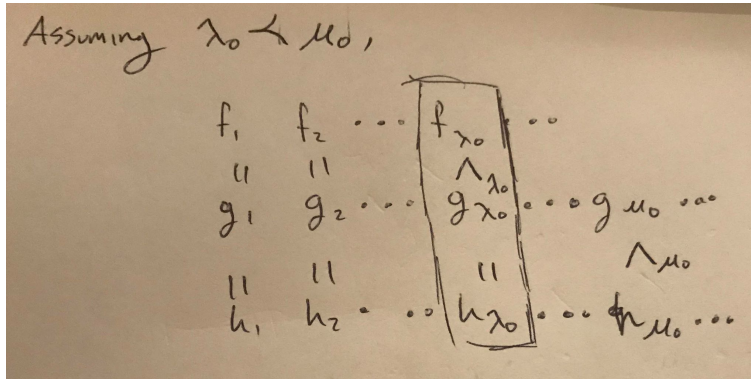 Assuming λ₀ ≺ μ₀,
f₁ f₂ ··· f_λ₀ ···
|| || ∧_λ₀
g₁ g₂ ··· g_λ₀ ··· g_μ₀ ···
|| || || ∧_μ₀
h₁ h₂ · ·· h_λ₀ ··· h_μ₀ ···